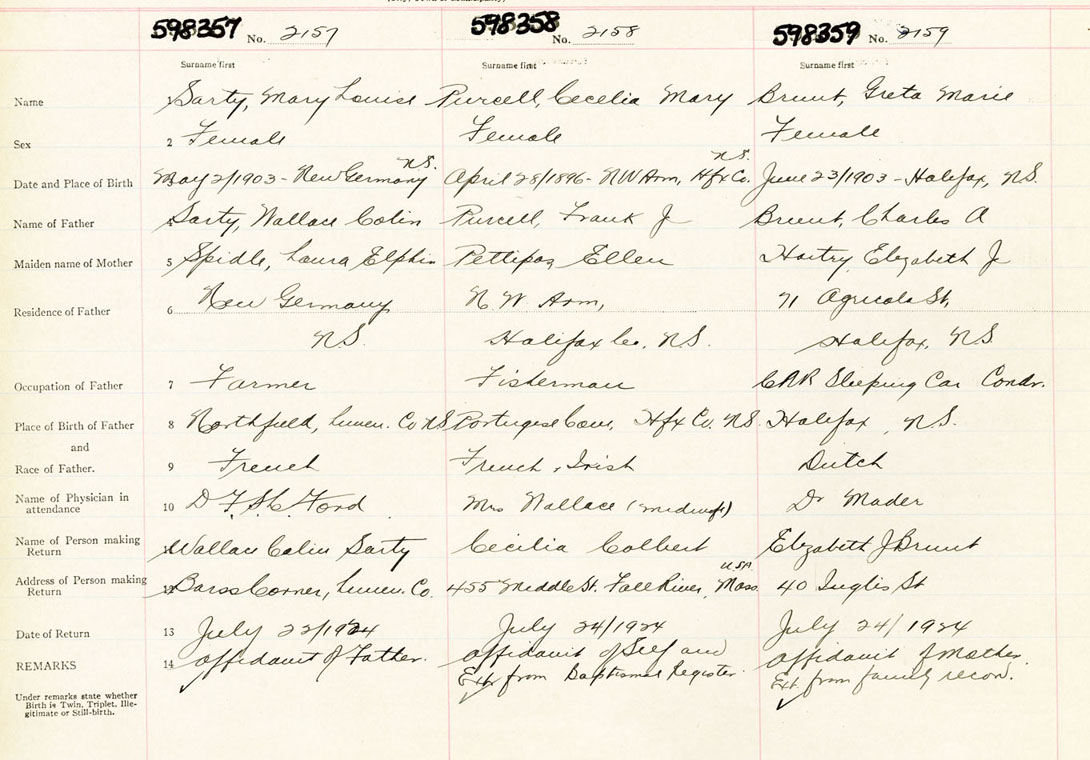 598357 No. 2157 598358 No. 2158 598359 No. 2159
Surname first Surname first Surname first
Name Sarty, Mary Louise Purcell, Cecelia Mary Brunt, Greta Marie
Sex 2 Female Female Female
N.S. N.S.
Date and Place of Birth May 2/1903 - New Germany April 28/1896 - N W Arm, Hfx Co. June 23/1903 - Halifax, N.S.
Name of Father Sarty, Wallace Colin Purcell, Frank J Brunt, Charles A
Maiden name of Mother 5 Spidle, Laura Elphin Pettipas Ellen Hartry, Elizabeth J
Residence of Father 6 New Germany N W Arm, 71 Agricola St,
N.S. Halifax Co. N.S. Halifax, N S
Occupation of Father 7 Farmer Fisherman C.N.R Sleeping Car Condr.
Place of Birth of Father 8 Northfield, Lunen. Co N S Portugese Cove, Hfx Co. N.S. Halifax, N.S.
and
Race of Father. 9 French French, Irish Dutch
Name of Physician in
attendance 10 Ford Mrs Wallace (midwife) Dr Mader
Name of Person making
Return Wallace Colin Sarty Cecilia Colbert Elizabeth J Brunt
U.S.A.
Address of Person making
Return Barss Corner, Lunen. Co. 455 Middle St. Fall River, Mass. 40 Inglis St
Date of Return 13 July 22/1924 July 24/1924 July 24/1924
REMARKS 14 Affidavit of Father. Affidavit of Self and Affidavit of Mother.
Ext. from Baptismal Register. Ext. from family record.
Under remarks state whether
Birth is Twin, Triplet, Ille-
gitimate or Still-birth.